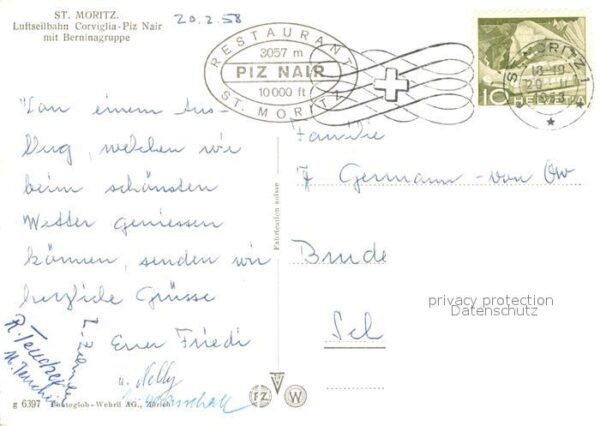 ST. MORITZ.
Luftseilbahn Corviglia-Piz Nair
mit Berninagruppe
20.2.58
RESTAURANT
3057 m
PIZ NAIR
10000 ft
ST. MORITZ
ST. MORITZ 1
10 HELVETIA
Von einem Aus-
flug, welchen wir
beim schönsten
Wetter geniessen
können, senden wir
herzliche Grüsse
Euer Friedi
u. Nelly
Familie
Germann - von Ow
Fabrication suisse
privacy protection
Datenschutz
g 6397 Photoglob-Wehrli AG., Zürich
FZ
W